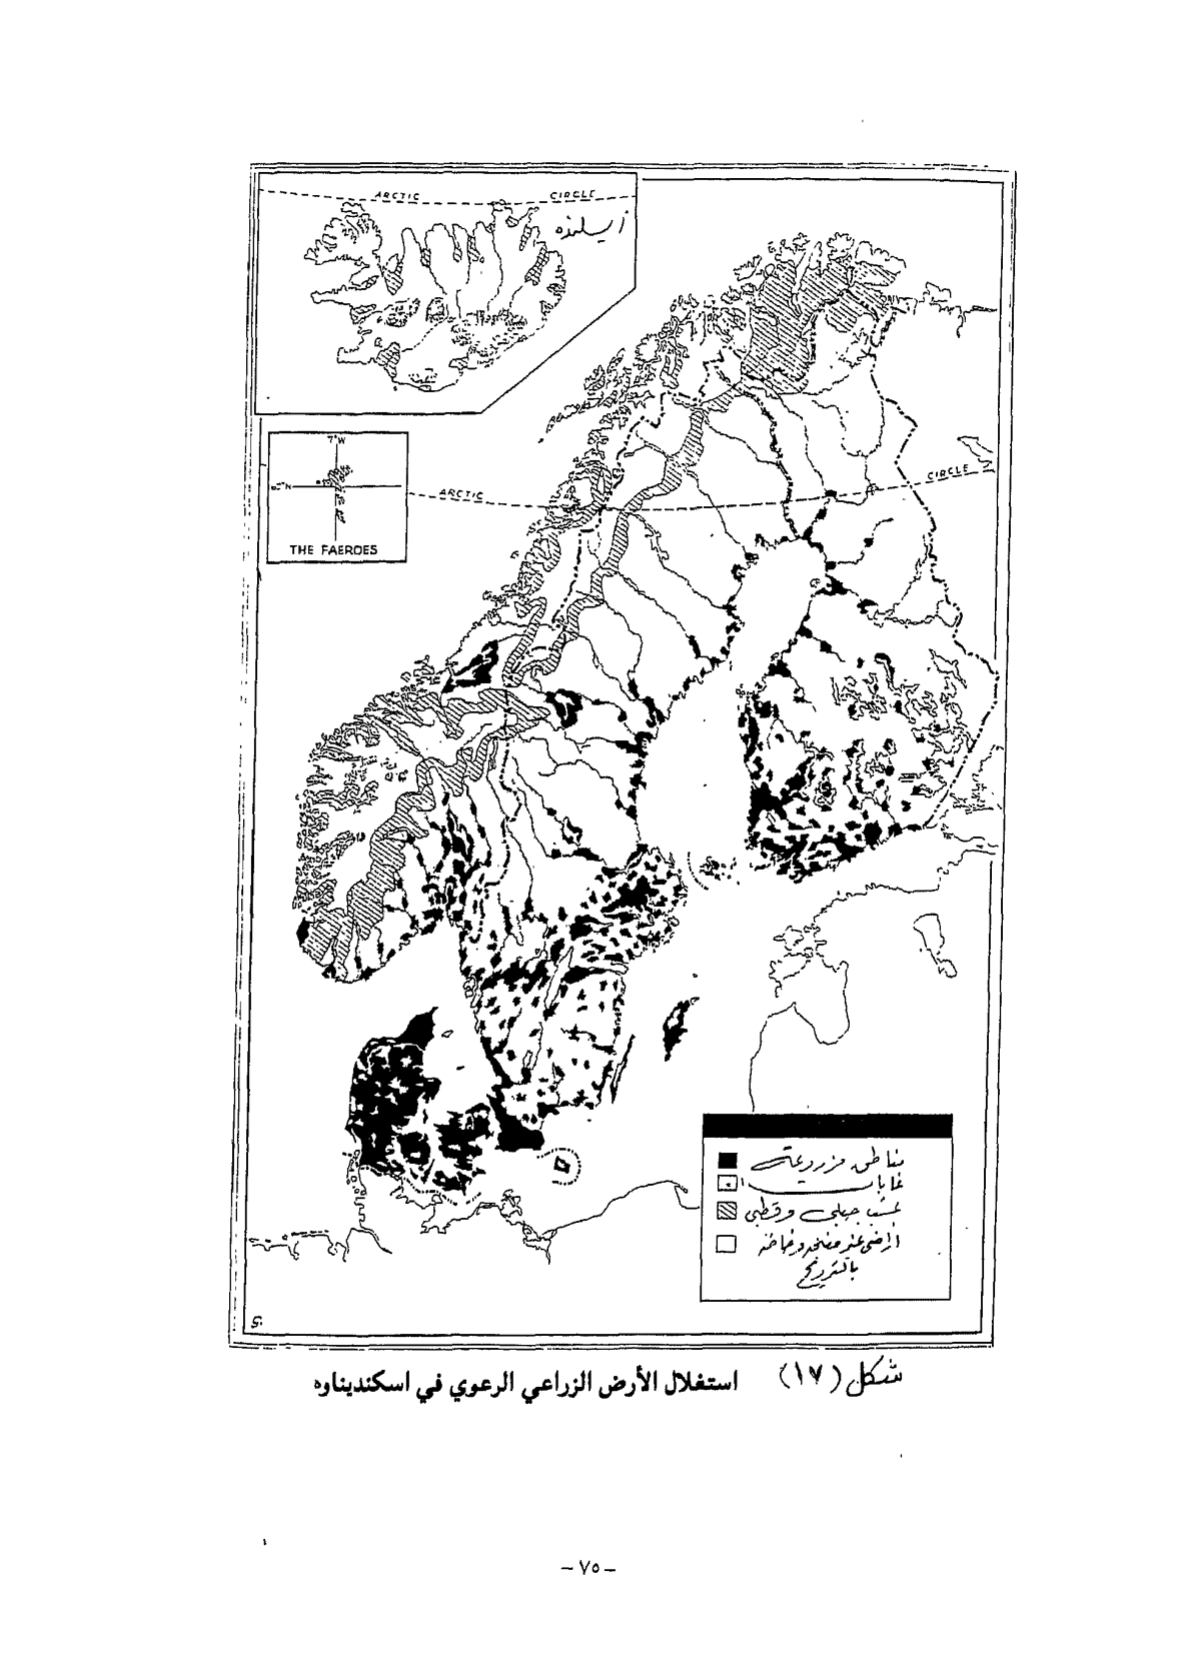 ARCTIC CIRCLE
ايسلنده
7°W
60°N
THE FAEROES
ARCTIC CIRCLE
مناطق مزروعة
غابات
عشب جبلي وقطبي
اراضي غير منتجه وخاصه
بالنرويج
G.
شكل (١٧) استغلال الأرض الزراعي الرعوي في اسكنديناوه
– ٧٥ –